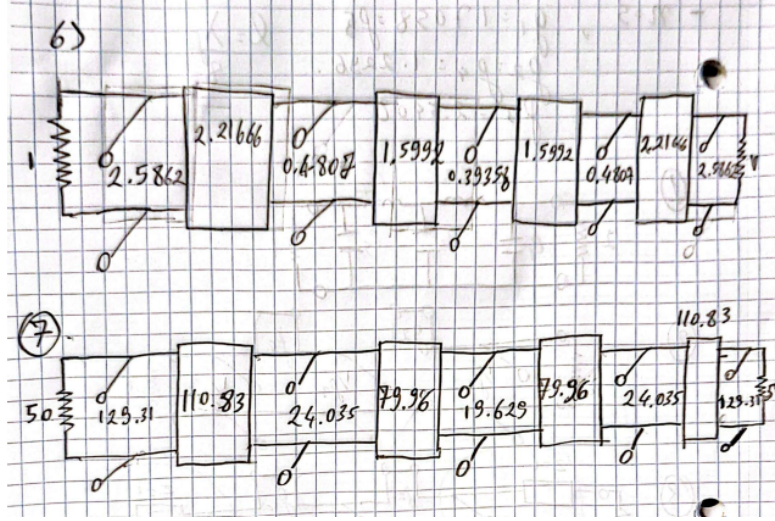 6)
1 2.5862 2.21666 0.4807 1.5992 0.39358 1.5992 0.4807 2.2166 2.5862 1
7
110.83
50 129.31 110.83 24.035 79.96 19.629 79.96 24.035 129.31